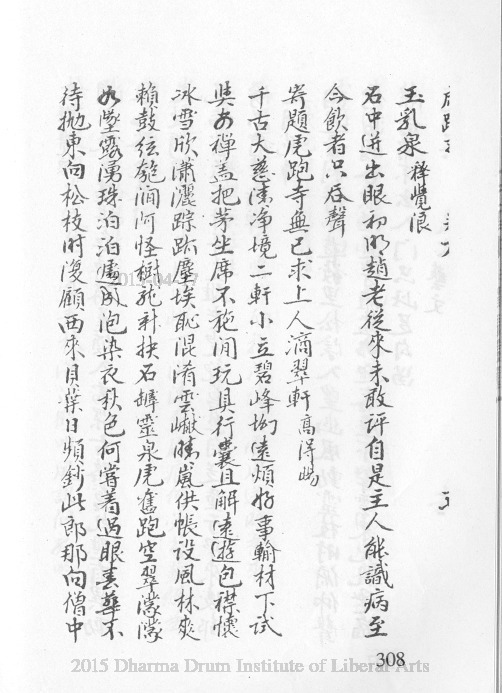 玉乳泉 釋覺浪
石中迸出眼初明趙老從來未敢評自是主人能識病至
今飲者只吞聲
寄題虎跑寺無已求上人滴翠軒 高得暘
千古大慈清淨境二軒小立碧峰坳遠煩好事輸材下試
與開禪蓋把茅坐席不施閒玩具行囊且解遠遊包襟懷
冰雪欣瀟灑踪跡塵埃恥混淆雲嶽晴嵐供帳設風林爽
籟鼓弦匏澗阿怪樹龍新扶石罅靈泉虎奮跑空翠濛濛
如墜露湧珠泊泊處成泡染衣秋色何嘗着過眼春華不
待抛東向松枝时復顧西來貝葉日頻鈔此郎那向僧中
308
2015 Dharma Drum Institute of Liberal Arts